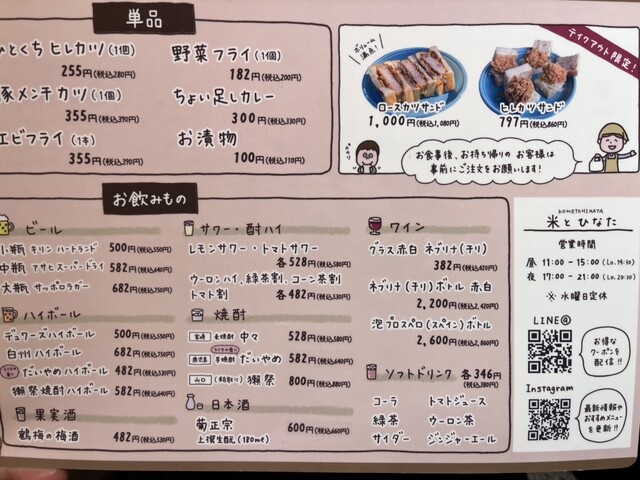 単品
ひとくち ヒレカツ(1個)
255円(税込280円)
豚メンチカツ(1個)
355円(税込390円)
エビフライ(1本)
355円(税込390円)
野菜フライ(1個)
182円(税込200円)
ちょい足しカレー
300円(税込330円)
お漬物
100円(税込110円)
テイクアウト限定!
ボリューム満点!
ロースカツサンド
1,000円(税込1,080円)
ヒレカツサンド
797円(税込860円)
お食事後、お持ち帰りの お客様は
事前にご注文をお願いします!
お飲みもの
ビール
小瓶 キリン ハートランド 500円(税込550円)
中瓶 アサヒスーパードライ 582円(税込640円)
大瓶 サッポロラガー 682円(税込750円)
ハイボール
デュワーズハイボール 500円(税込550円)
白州ハイボール 682円(税込750円)
だいやめハイボール 482円(税込530円)
獺祭焼酎ハイボール 582円(税込640円)
果実酒
鶴梅の梅酒 482円(税込530円)
サワー・酎ハイ
レモンサワー・トマトサワー
各528円(税込580円)
ウーロンハイ、緑茶割、コーン茶割
トマト割 各482円(税込530円)
焼酎
宮崎 麦焼酎 中々 528円(税込580円)
鹿児島 芋焼酎 だいやめ 582円(税込640円)
山口 (粕取り) 獺祭 800円(税込880円)
日本酒
菊正宗
上撰生酛(180ml) 600円(税込660円)
ワイン
グラス赤白 ネブリナ(チリ)
382円(税込420円)
ネブリナ(チリ)ボトル 赤白
2,200円(税込2,420円)
泡プロスペロ(スペイン)ボトル
2,600円(税込2,860円)
ソフトドリンク 各346円
(税込380円)
コーラ トマトジュース
緑茶 ウーロン茶
サイダー ジンジャーエール
KOMETOHINATA
米とひなた
営業時間
昼 11:00 - 15:00 (Lo.14:30)
夜 17:00 - 21:00 (Lo.20:30)
※ 水曜日定休
LINE@
お得な
クーポンを
配信!!
Instagram
最新情報や
おすすめメニュー
を更新!!